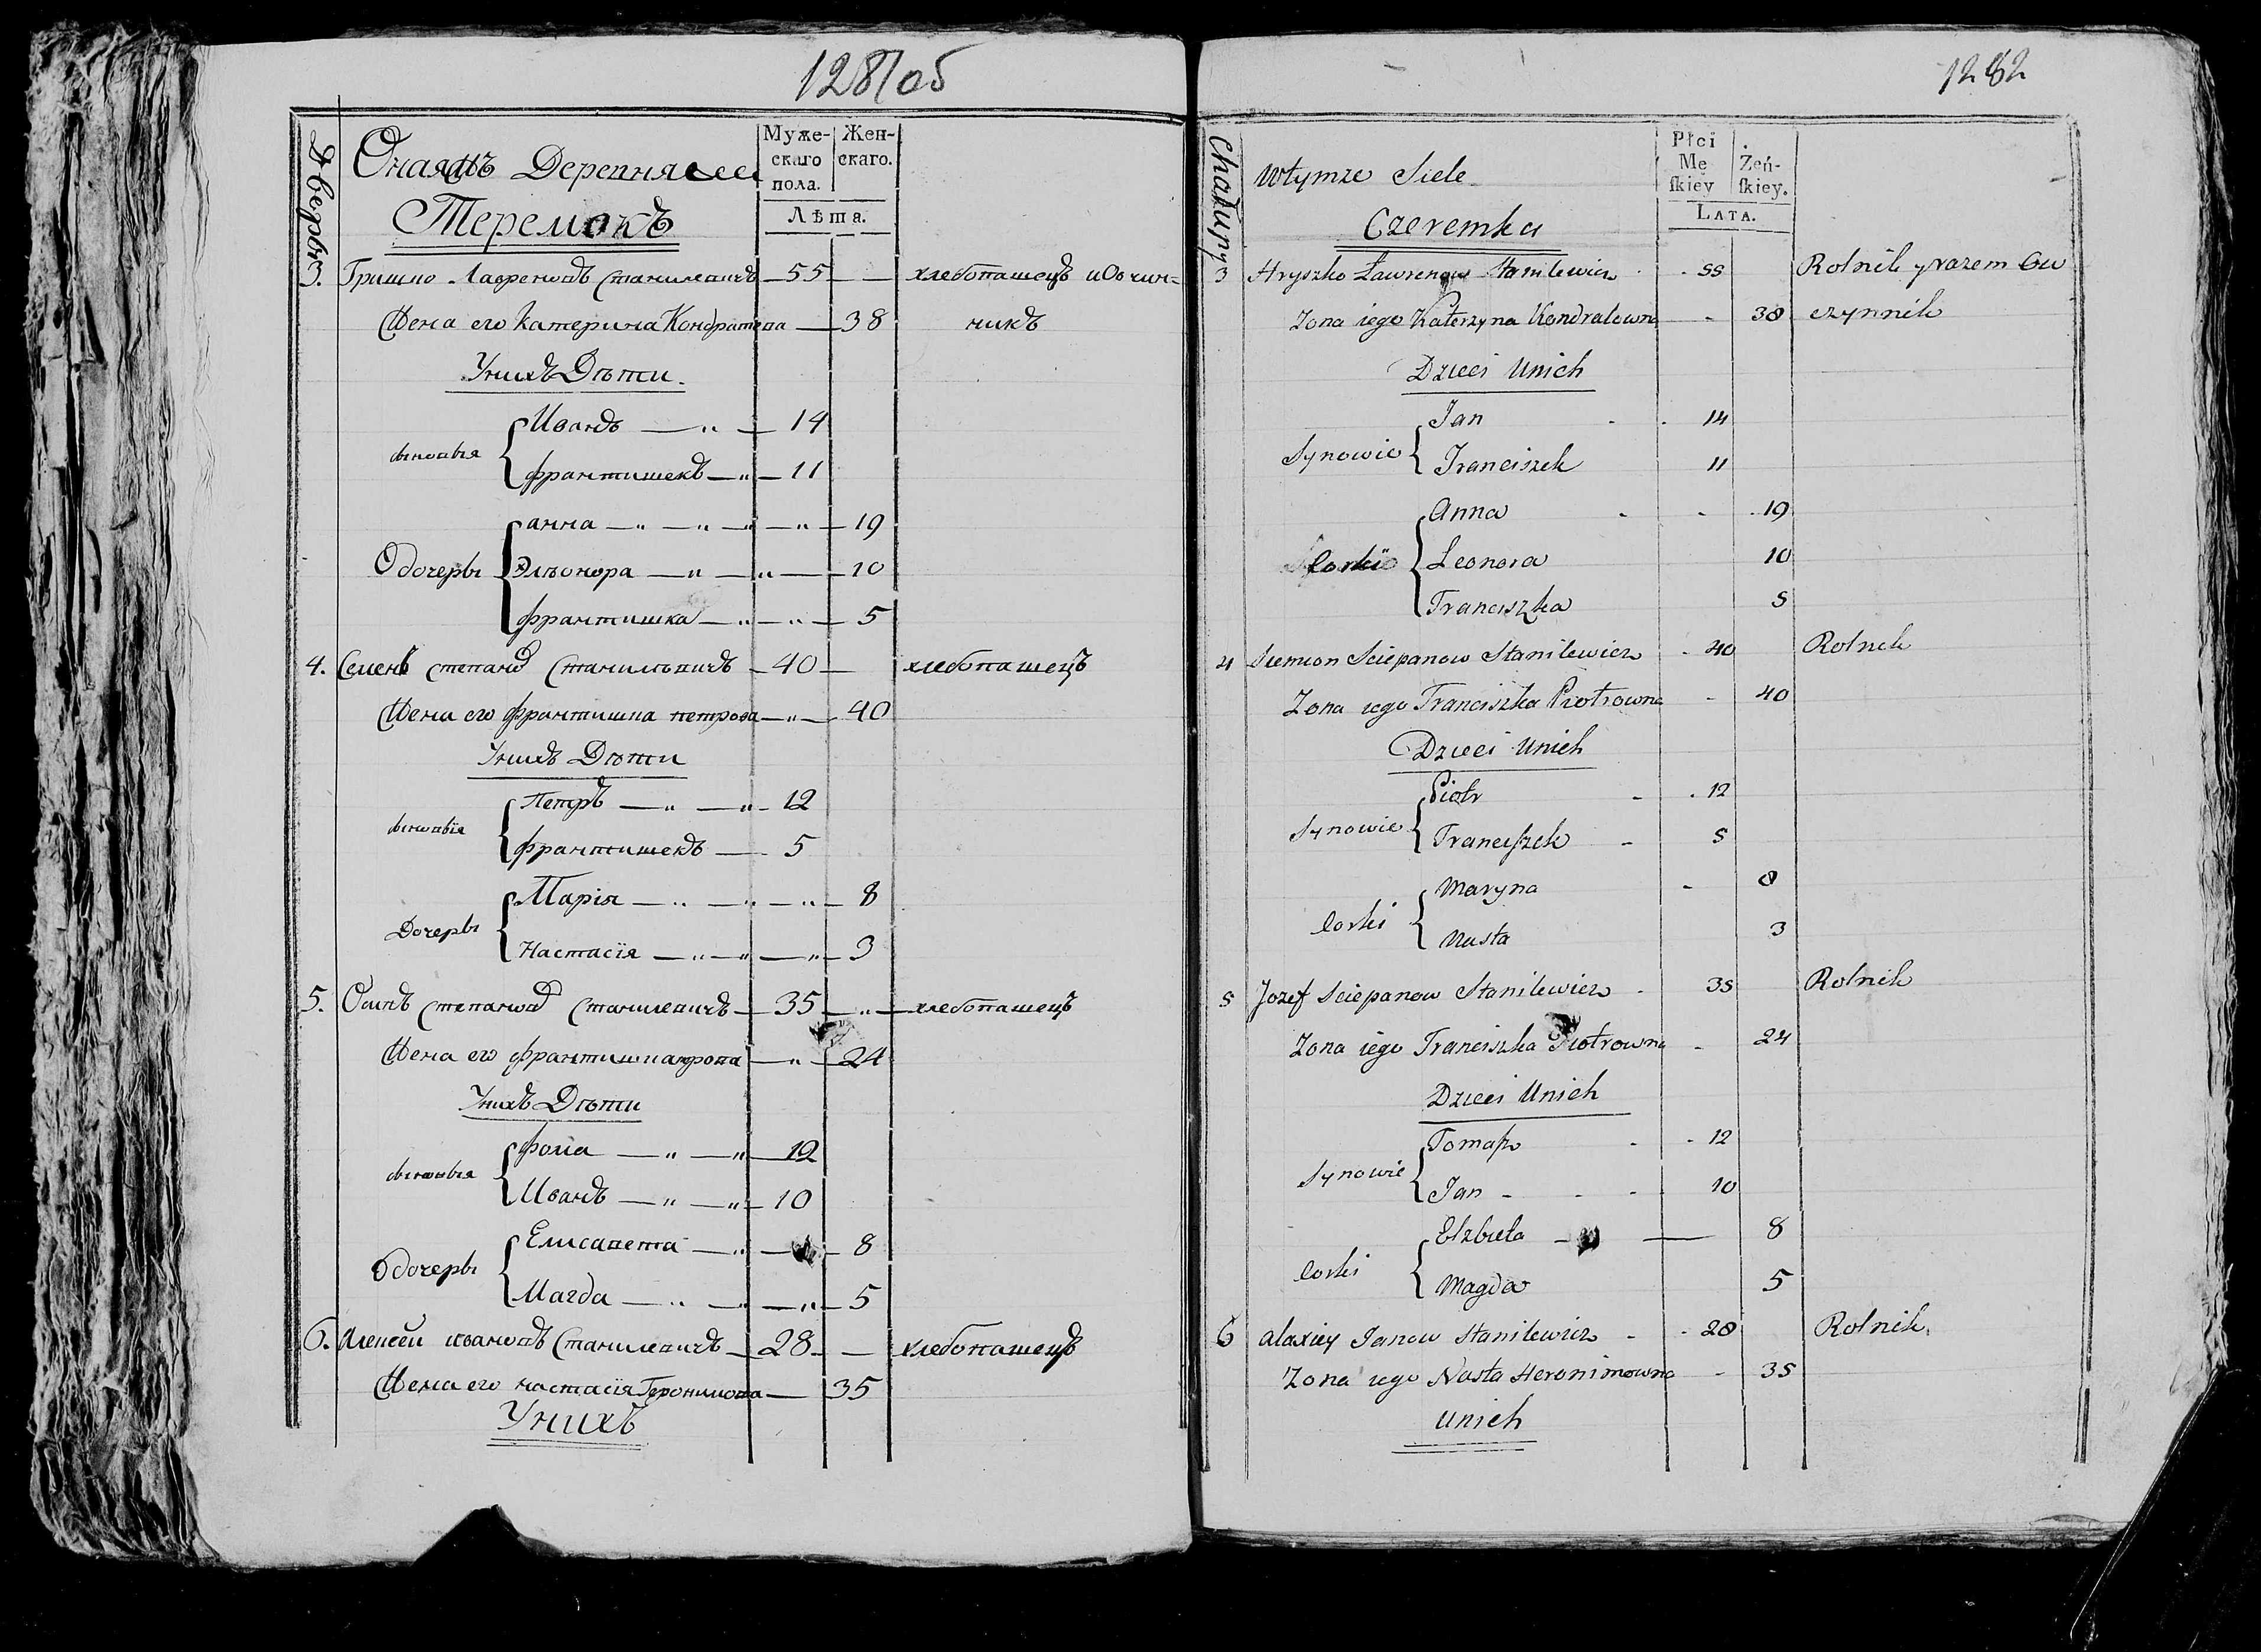 128/об
Дворы
Онаяжъ Деревня
Теремокъ
Муже-
скаго
пола.
Жен-
скаго.
Лѣта.
3. Гришко Лавреновъ Станилевичъ — 55 — хлебопашецъ и Овчин-
Жена его Катерина Кондратова — 38 никъ
У нихъ Дѣти.
сыновья
Иванъ — " — 14
франтишекъ — " — 11
дочеры
анна — " — " — " — 19
Элѣонора — " — " — 10
франтишка — " — " — 5
4. Семенъ Степановъ Станилѣвичъ — 40 — хлебопашецъ
Жена его франтишка петрова — " — 40
У нихъ Дѣти
сыновїя
Петръ — " — " — 12
франтишекъ — 5
Дочеры
Марія — " — " — " — 8
Настасїя — " — " — " — 3
5. Осипъ Степановъ Станилевичъ — 35 — " — хлебопашецъ
Жена его франтишка — " — 24
У нихъ Дѣти
сыновья
фома — " — " — 12
Иванъ — " — " — 10
дочеры
Елисавета — " — 8
Магда — " — " — " — 5
6. Алексей ивановъ Станилевичъ — 28 — хлебопашецъ
Жена его настасїя Геронимова — 35
У нихъ
1282
Chałupy
Wtymze Siele
Czeremka
Płci
Mę
ſkiey
Żeń-
ſkiey.
LATA.
3 Hryszko Ławrenow Stanilewicz 55 Rolnik y razem Ow
Zona iego Katerzyna Kondratowna - 38 czynnik
Dzieci Unich
Synowie
Jan 14
Franciszek 11
Corki
Anna 19
Leonora 10
Franciszka 5
4 Siemion Sciepanow Stanilewicz 40 Rolnik
Zona iego Franciszka Piotrowna - 40
Dzieci Unich
Synowie
Piotr - 12
Franciſzek - 5
Corki
Maryna - 8
Nasta 3
5 Jozef Sciepanow Stanilewicz - 35 Rolnik
Zona iego Franciszka Piotrowna - 24
Dzieci Unich
Synowie
Tomaſz - 12
Jan - 10
Corki
Elzbieta — 8
Magda 5
6 Alaxiey Janow Stanilewicz - 28 Rolnik.
Zona iego Nasta Heronimowna - 35
Unich